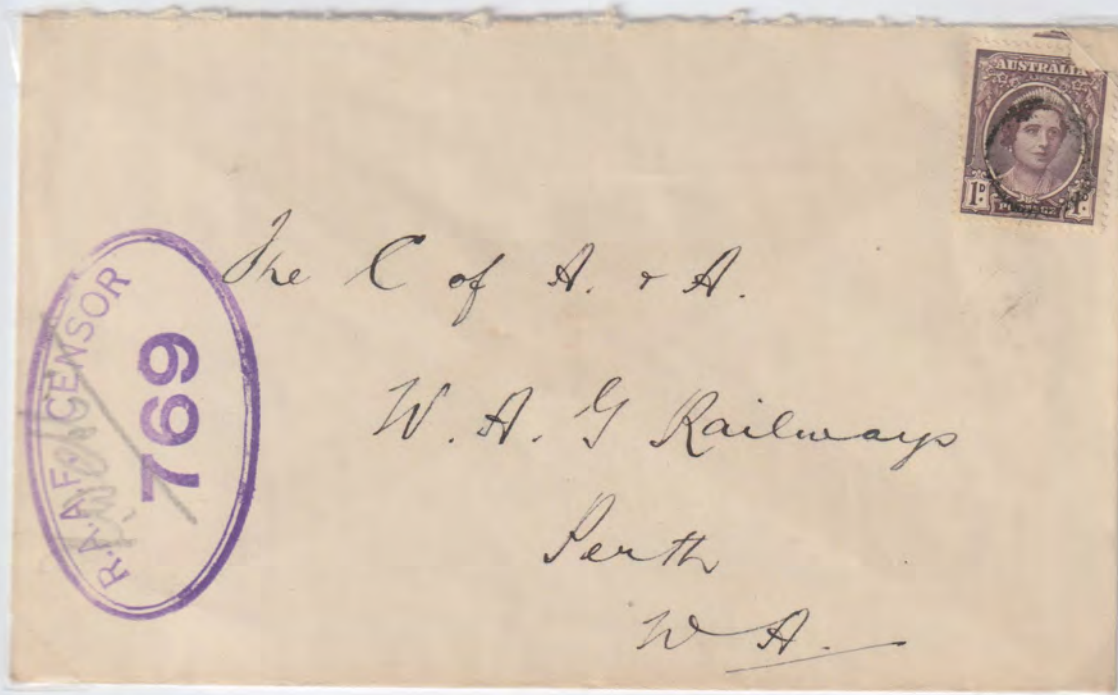 AUSTRALIA
1D. POSTAGE 1D.
R.A.A.F. CENSOR
769
The C of A. & A.
W. A. G Railways
Perth
W A.